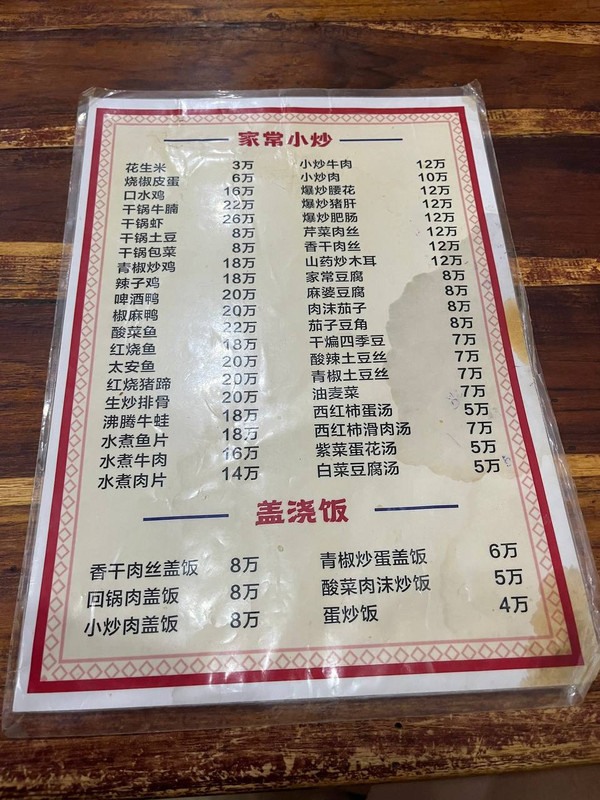 家常小炒
花生米 3万
烧椒皮蛋 6万
口水鸡 16万
干锅牛腩 22万
干锅虾 26万
干锅土豆 8万
干锅包菜 8万
青椒炒鸡 18万
辣子鸡 18万
啤酒鸭 20万
椒麻鸭 20万
酸菜鱼 22万
红烧鱼 18万
太安鱼 20万
红烧猪蹄 20万
生炒排骨 20万
沸腾牛蛙 18万
水煮鱼片 18万
水煮牛肉 16万
水煮肉片 14万
小炒牛肉 12万
小炒肉 10万
爆炒腰花 12万
爆炒猪肝 12万
爆炒肥肠 12万
芹菜肉丝 12万
香干肉丝 12万
山药炒木耳 12万
家常豆腐 8万
麻婆豆腐 8万
肉沫茄子 8万
茄子豆角 8万
干煸四季豆 7万
酸辣土豆丝 7万
青椒土豆丝 7万
油麦菜 7万
西红柿蛋汤 5万
西红柿滑肉汤 7万
紫菜蛋花汤 5万
白菜豆腐汤 5万
盖浇饭
香干肉丝盖饭 8万
回锅肉盖饭 8万
小炒肉盖饭 8万
青椒炒蛋盖饭 6万
酸菜肉沫炒饭 5万
蛋炒饭 4万